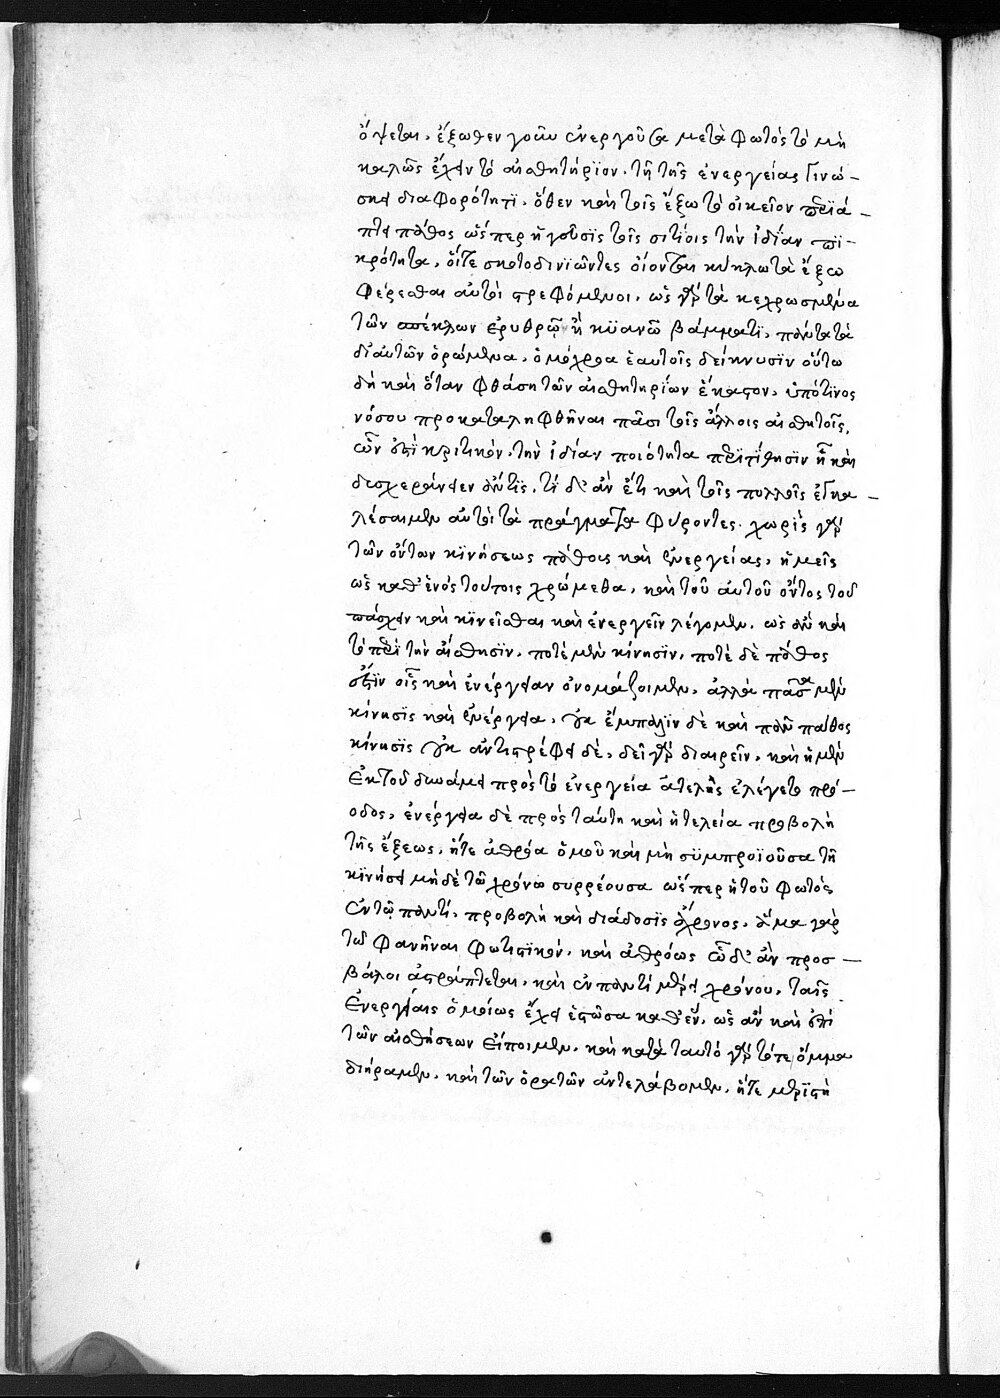 ὄψεται, ἔξωθεν γοῦν ἐνεργοῦντα μετὰ φωτὸς τὸ μὴ
καλῶς ἔχειν τὸ αἰσθητήριον, τῇ τῆς ἐνεργείας γινώ-
σκει διαφορότητι, ὅθεν καὶ τοῖς ἔξω τὸ οἰκεῖον περιά-
πτει πάθος ὥσπερ ἡ γεῦσις τοῖς σιτίοις τὴν ἰδίαν πι-
κρότητα, οἵτε σκοτοδινιῶντες οἴονται κύκλω τὰ ἔξω
φέρεσθαι αὐτοὶ στρεφόμενοι, ὡς γὰρ τὰ κεχρωσμένα
τῶν υέλων ἐρυθρῷ ἢ κυανῶ βάμματι, πάντα τὰ
δι' αὐτῶν ὁρώμενα, ὁμόχροα ἑαυτοῖς δείκνυσιν οὕτω
δὴ καὶ ὅταν φθάση τῶν αἰσθητηρίων ἕκαστον, ὑπό τινος
νόσου προκαταληφθῆναι πᾶσι τοῖς ἄλλοις αἰσθητοῖς,
ὧν ἐστὶ κριτικὸν, τὴν ἰδίαν ποιότητα περιτίθησιν ἧ καὶ
δυσχεράνειεν ἄν τις, τί δ' ἂν ἔτι καὶ τοῖς πολλοῖς ἐγκα-
λέσαιμεν αὐτοὶ τὰ πράγματα φύροντες. χωρὶς γὰρ
τῶν ὄντων κινήσεως πάθους καὶ ἐνεργείας, ἡμεῖς
ὡς καθ' ἑνὸς τούτοις χρώμεθα, καὶ τοῦ αὐτοῦ ὄντος τοῦ
πάσχειν καὶ κινεῖσθαι καὶ ἐνεργεῖν λέγομεν, ὡς ἂν καὶ
τὸ περὶ τὴν αἴσθησιν, ποτὲ μὲν κίνησιν, ποτὲ δὲ πάθος
ἔστιν οἷς καὶ ἐνέργειαν ὀνομάζοιμεν, ἀλλὰ πᾶσα μὲν
κίνησις καὶ ἐνέργεια, οὐκ ἔμπαλιν δὲ καὶ πᾶν πάθος
κίνησις οὐκ ἀντιστρέφει δὲ, δεῖ γὰρ διαιρεῖν, καὶ ἡ μὲν
ἐκ τοῦ δυνάμει πρὸς τὸ ἐνεργεία ἀτελὴς ἐλέγετο πρό-
οδος, ἐνέργεια δὲ πρὸς ταύτη καὶ ἡ τελεία προβολὴ
τῆς ἕξεως, ἥτε ἀθρόα ὁμοῦ καὶ μὴ συμπροϊοῦσα τῆ
κινήσει μηδὲ τῶ χρόνω συρρέουσα ὥσπερ ἡ τοῦ φωτὸς
ἐν τῷ παντί, προβολὴ καὶ διάδοσις ἄχρονος, ἅμα γὰρ
τῶ φανῆναι φωτιστικόν, καὶ ἀθρόως ὧ δ' ἂν προσ-
βάλοι ἀστράπτεται, καὶ ἐν παντὶ μέρει χρόνου, ταῖς
ἐνεργείαις ὁμοίως ἔχει ἑστῶσα καθ' ἓν, ὡς ἂν καὶ ἐπὶ
τῶν αἰσθήσεων εἴποιμεν, καὶ κατὰ ταυτὸ γὰρ τότε ὄμμα
διήραμεν, καὶ τῶν ὁρατῶν ἀντελάβομεν, ἥτε μεριστὴ